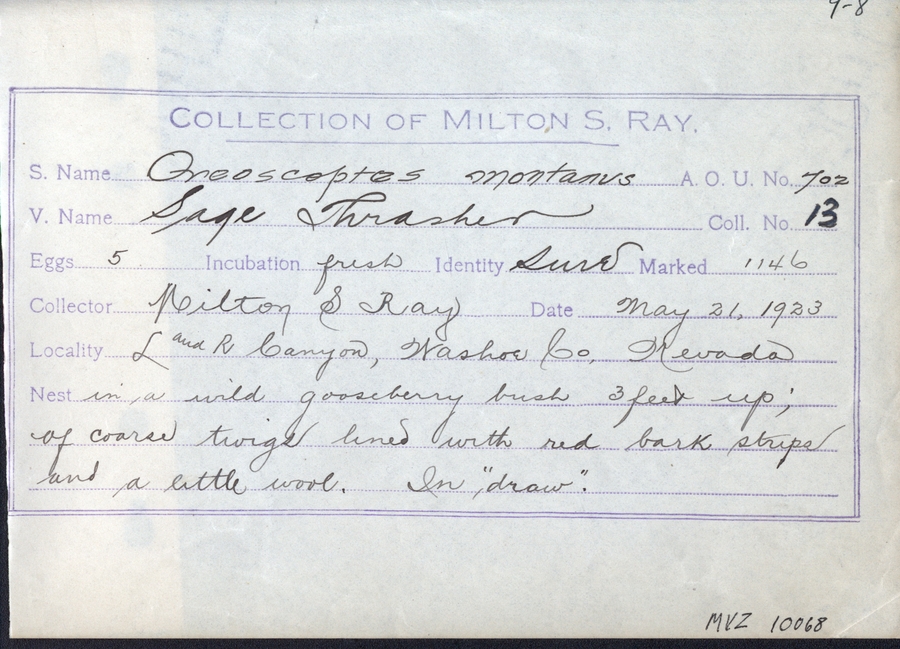 9-8
COLLECTION OF MILTON S. RAY.
S. Name Oreoscoptes montanus A. O. U. No. 702
V. Name Sage Thrasher Coll. No. 13
Eggs 5 Incubation fresh Identity Sure Marked 1146
Collector Milton S Ray Date May 21, 1923
Locality L and R Canyon, Washoe Co, Nevada
Nest in a wild gooseberry bush 3 feet up;
of coarse twigs lined with red bark strips
and a little wool. In "draw".
MVZ 10068